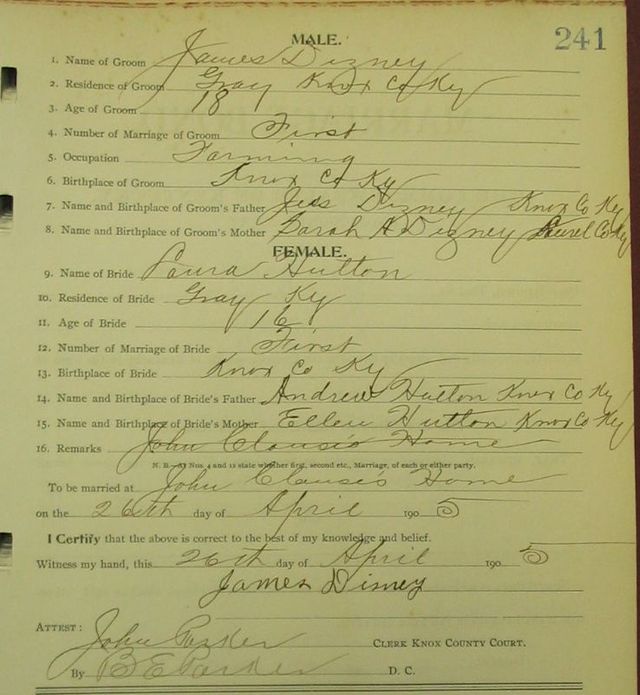 241
MALE.
1. Name of Groom James Dizney
2. Residence of Groom Gray Knox Co Ky
3. Age of Groom 18
4. Number of Marriage of Groom First
5. Occupation Farming
6. Birthplace of Groom Knox Co Ky
7. Name and Birthplace of Groom's Father Dizney Knox Co Ky
8. Name and Birthplace of Groom's Mother Sarah A Dizney Laurel Co Ky
FEMALE.
9. Name of Bride Laura Hutton
10. Residence of Bride Gray Ky
11. Age of Bride 16
12. Number of Marriage of Bride First
13. Birthplace of Bride Knox Co Ky
14. Name and Birthplace of Bride's Father Andrew Hutton Knox Co Ky
15. Name and Birthplace of Bride's Mother Ellen Hutton Knox Co Ky
16. Remarks John Home
N. B.—At Nos 4 and 12 state whether first, second etc., Marriage, of each or either party.
To be married at John Home
on the 26th day of April 190 5
I Certify that the above is correct to the best of my knowledge and belief.
Witness my hand, this 26th day of April 190 5
James Disney
ATTEST:
John Parker CLERK KNOX COUNTY COURT.
By B E Parker D. C.